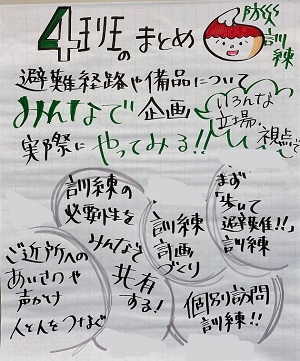 4班のまとめ
防災
訓練
避難経路や備品について
みんなで企画
いろんな
立場、
視点で
実際にやってみる!!
訓練の
必要性を
みんなで
共有
する!
訓練
計画
づくり
まず
「歩いて
避難!!」
訓練
ご近所への
あいさつや
声かけ
人と人をつなぐ
個別訪問
訓練!!